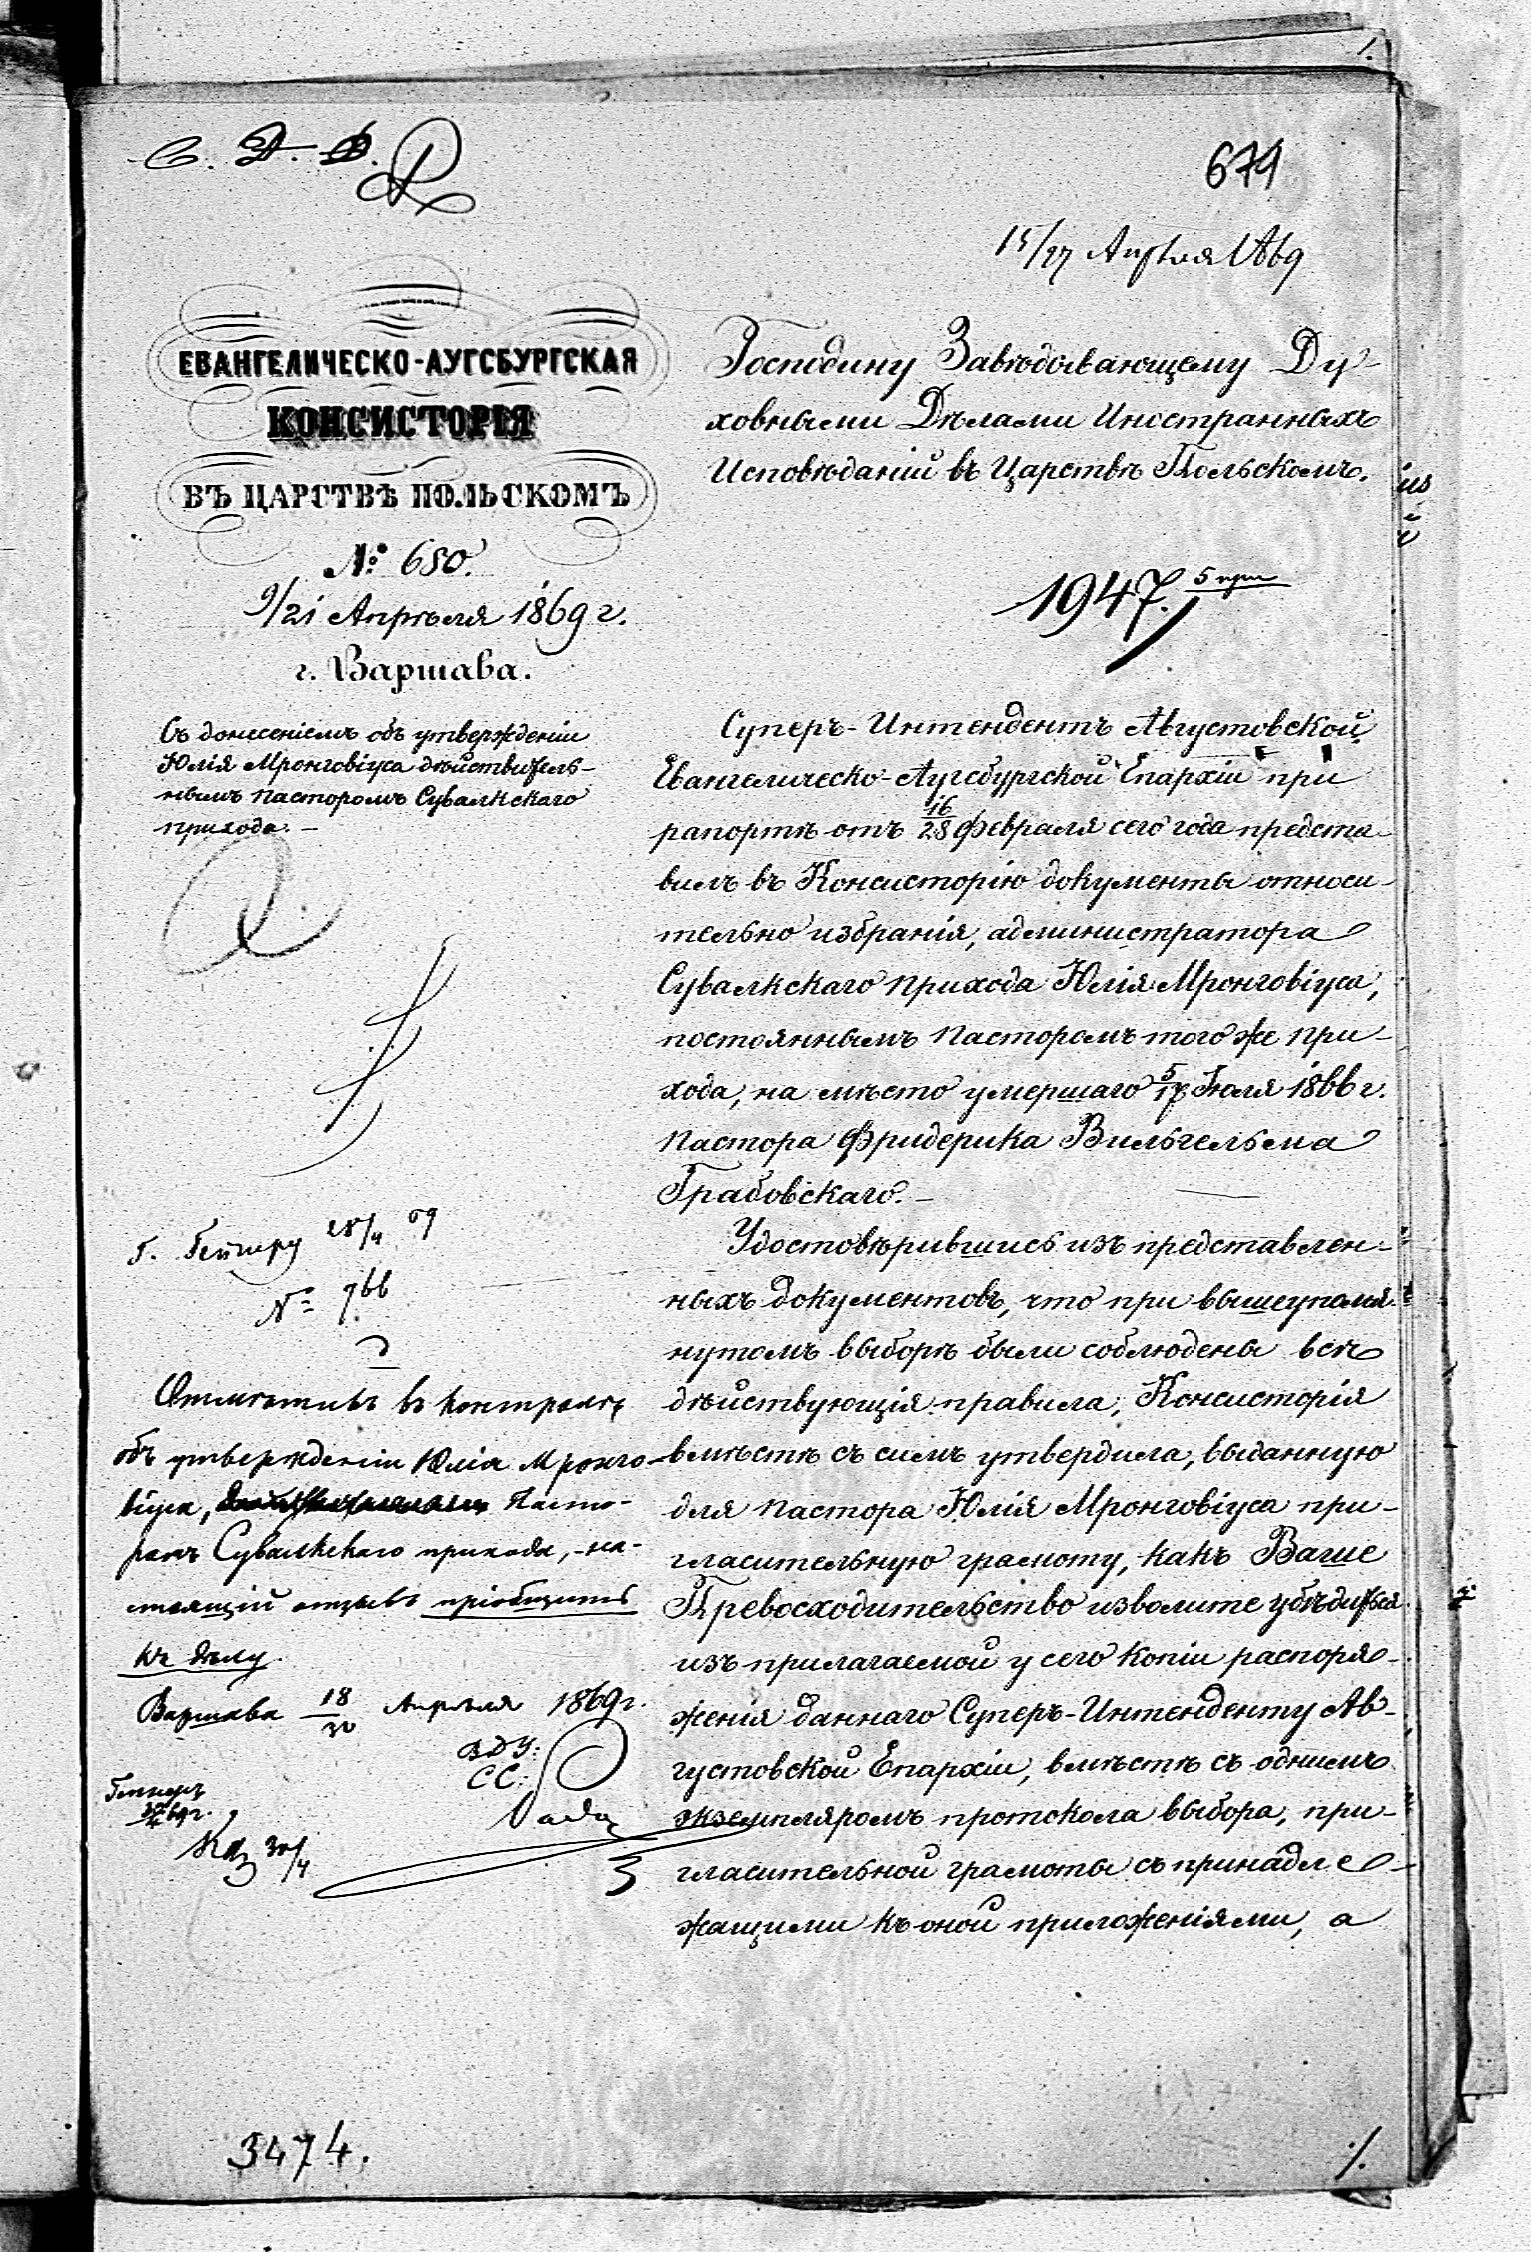 1.
С. Д. Д.
679
15/27 Апреля 1869
ЕВАНГЕЛИЧЕСКО-АУГСБУРГСКАЯ
КОНСИСТОРІЯ
ВЪ ЦАРСТВѢ ПОЛЬСКОМЪ
№ 680.
9/21 Апрѣля 1869 г.
г. Варшава.
Съ донесеніемъ объ утвержденіи
Юлія Мронговіуса дѣйствитель-
нымъ пасторомъ Сувалкскаго
прихода. –
Господину Завѣдывающему Ду-
ховными Дѣлами Иностранныхъ
Исповѣданій въ Царствѣ Польскомъ.
1947. 5 при
Суперъ-Интендентъ Августовской
Евангелическо-Аугсбургской Епархіи при
рапортѣ отъ 16/28 Февраля сего года предста-
вилъ въ Консисторію документы относи-
тельно избранія, администратора
Сувалкскаго прихода Юлія Мронговіуса,
постояннымъ пасторомъ того же при-
хода, на мѣсто умершаго 5/17 Іюля 1866 г.
пастора Фридерика Вильгельма
Грабовскаго. –
Удостовѣрившись изъ представлен-
ныхъ документовъ, что при вышеупомя-
нутомъ выборѣ были соблюдены всѣ
дѣйствующія правила, Консисторія
вмѣстѣ съ симъ утвердила, выданную
для пастора Юлія Мронговіуса при-
гласительную грамоту, какъ Ваше
Превосходительство изволите убѣдиться
изъ прилагаемой у сего копіи распоря-
женія даннаго Суперъ-Интенденту Ав-
густовской Епархіи, вмѣстѣ съ однимъ
экземпляромъ протокола выбора, при-
гласительной грамоты съ принадле-
жащими къ оной приложеніями, а
Г. Гейнеру 28/4 69
№ 966
Отмѣтивъ въ контролѣ
объ утвержденіи Юлія Мронго-
віуса, Пасто-
ромъ Сувалкскаго прихода, – на-
стоящій отзывъ пріобщить
къ дѣлу.
Варшава 18/30 Апрѣля 1869 г.
ЗДУ:
СС:
30/4
3474.
./.